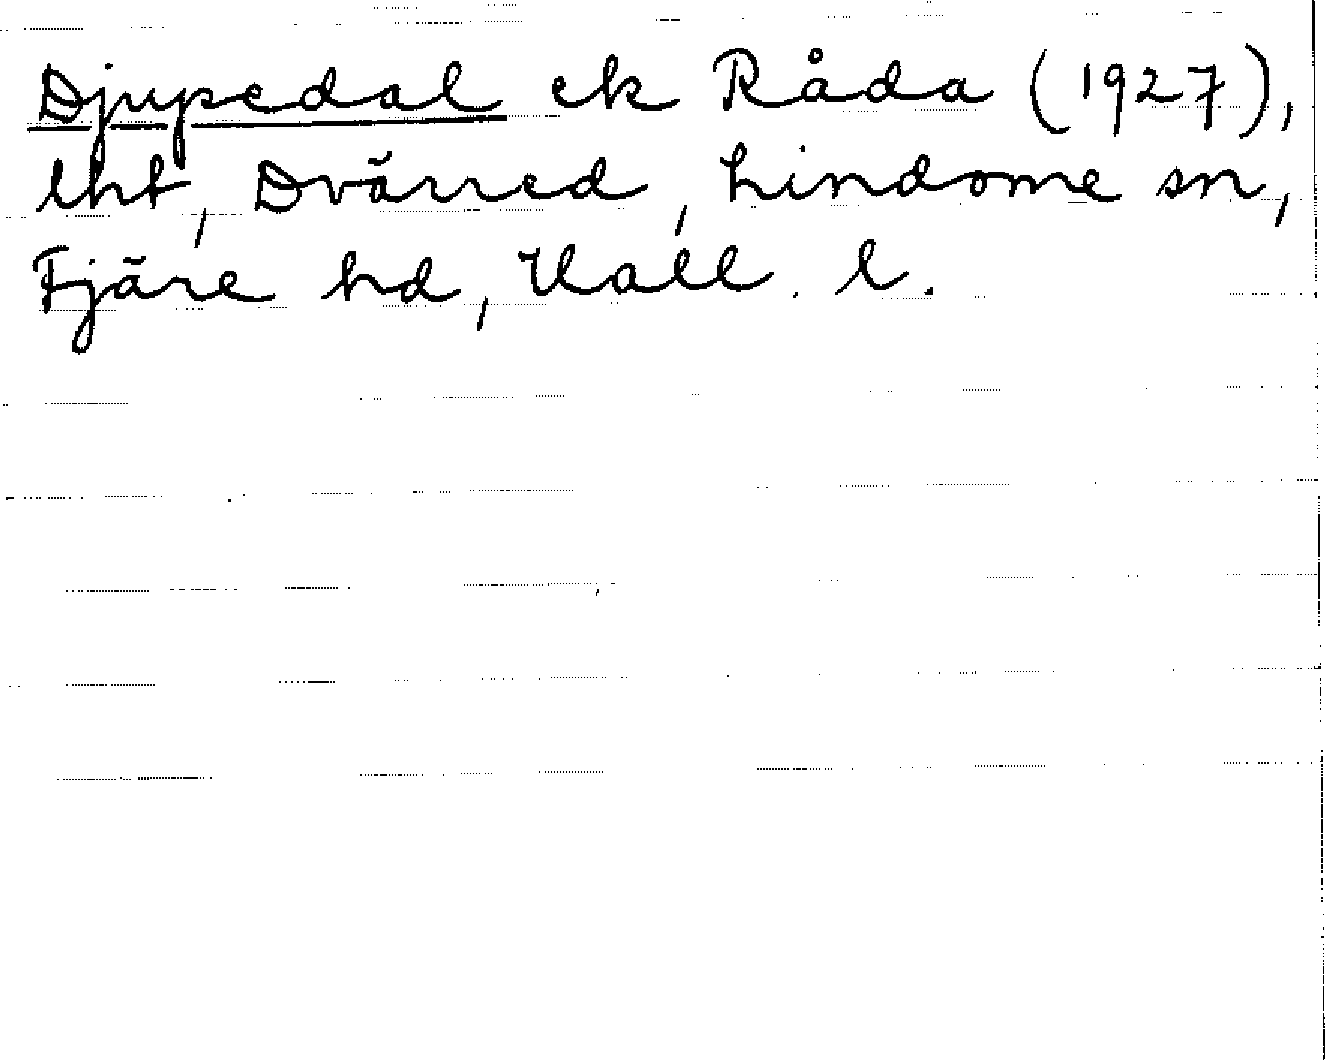 Djupedal ek Råda (1927),
lht, Dvärred, Lindome sn,
Fjäre hd, Hall. l.